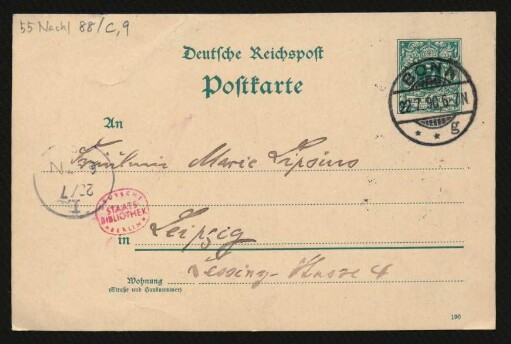 55 Nachl 88/C,9
Deutsche Reichspost
Postkarte
BONN
22.7.90.6-7N
* * g
An
Fräulein Marie Lipsius
DEUTSCHE
STAATS
BIBLIOTHEK
* BERLIN *
in Leipzig
Lessing-Strasse 4
Wohnung
(Straße und Hausnummer)
190